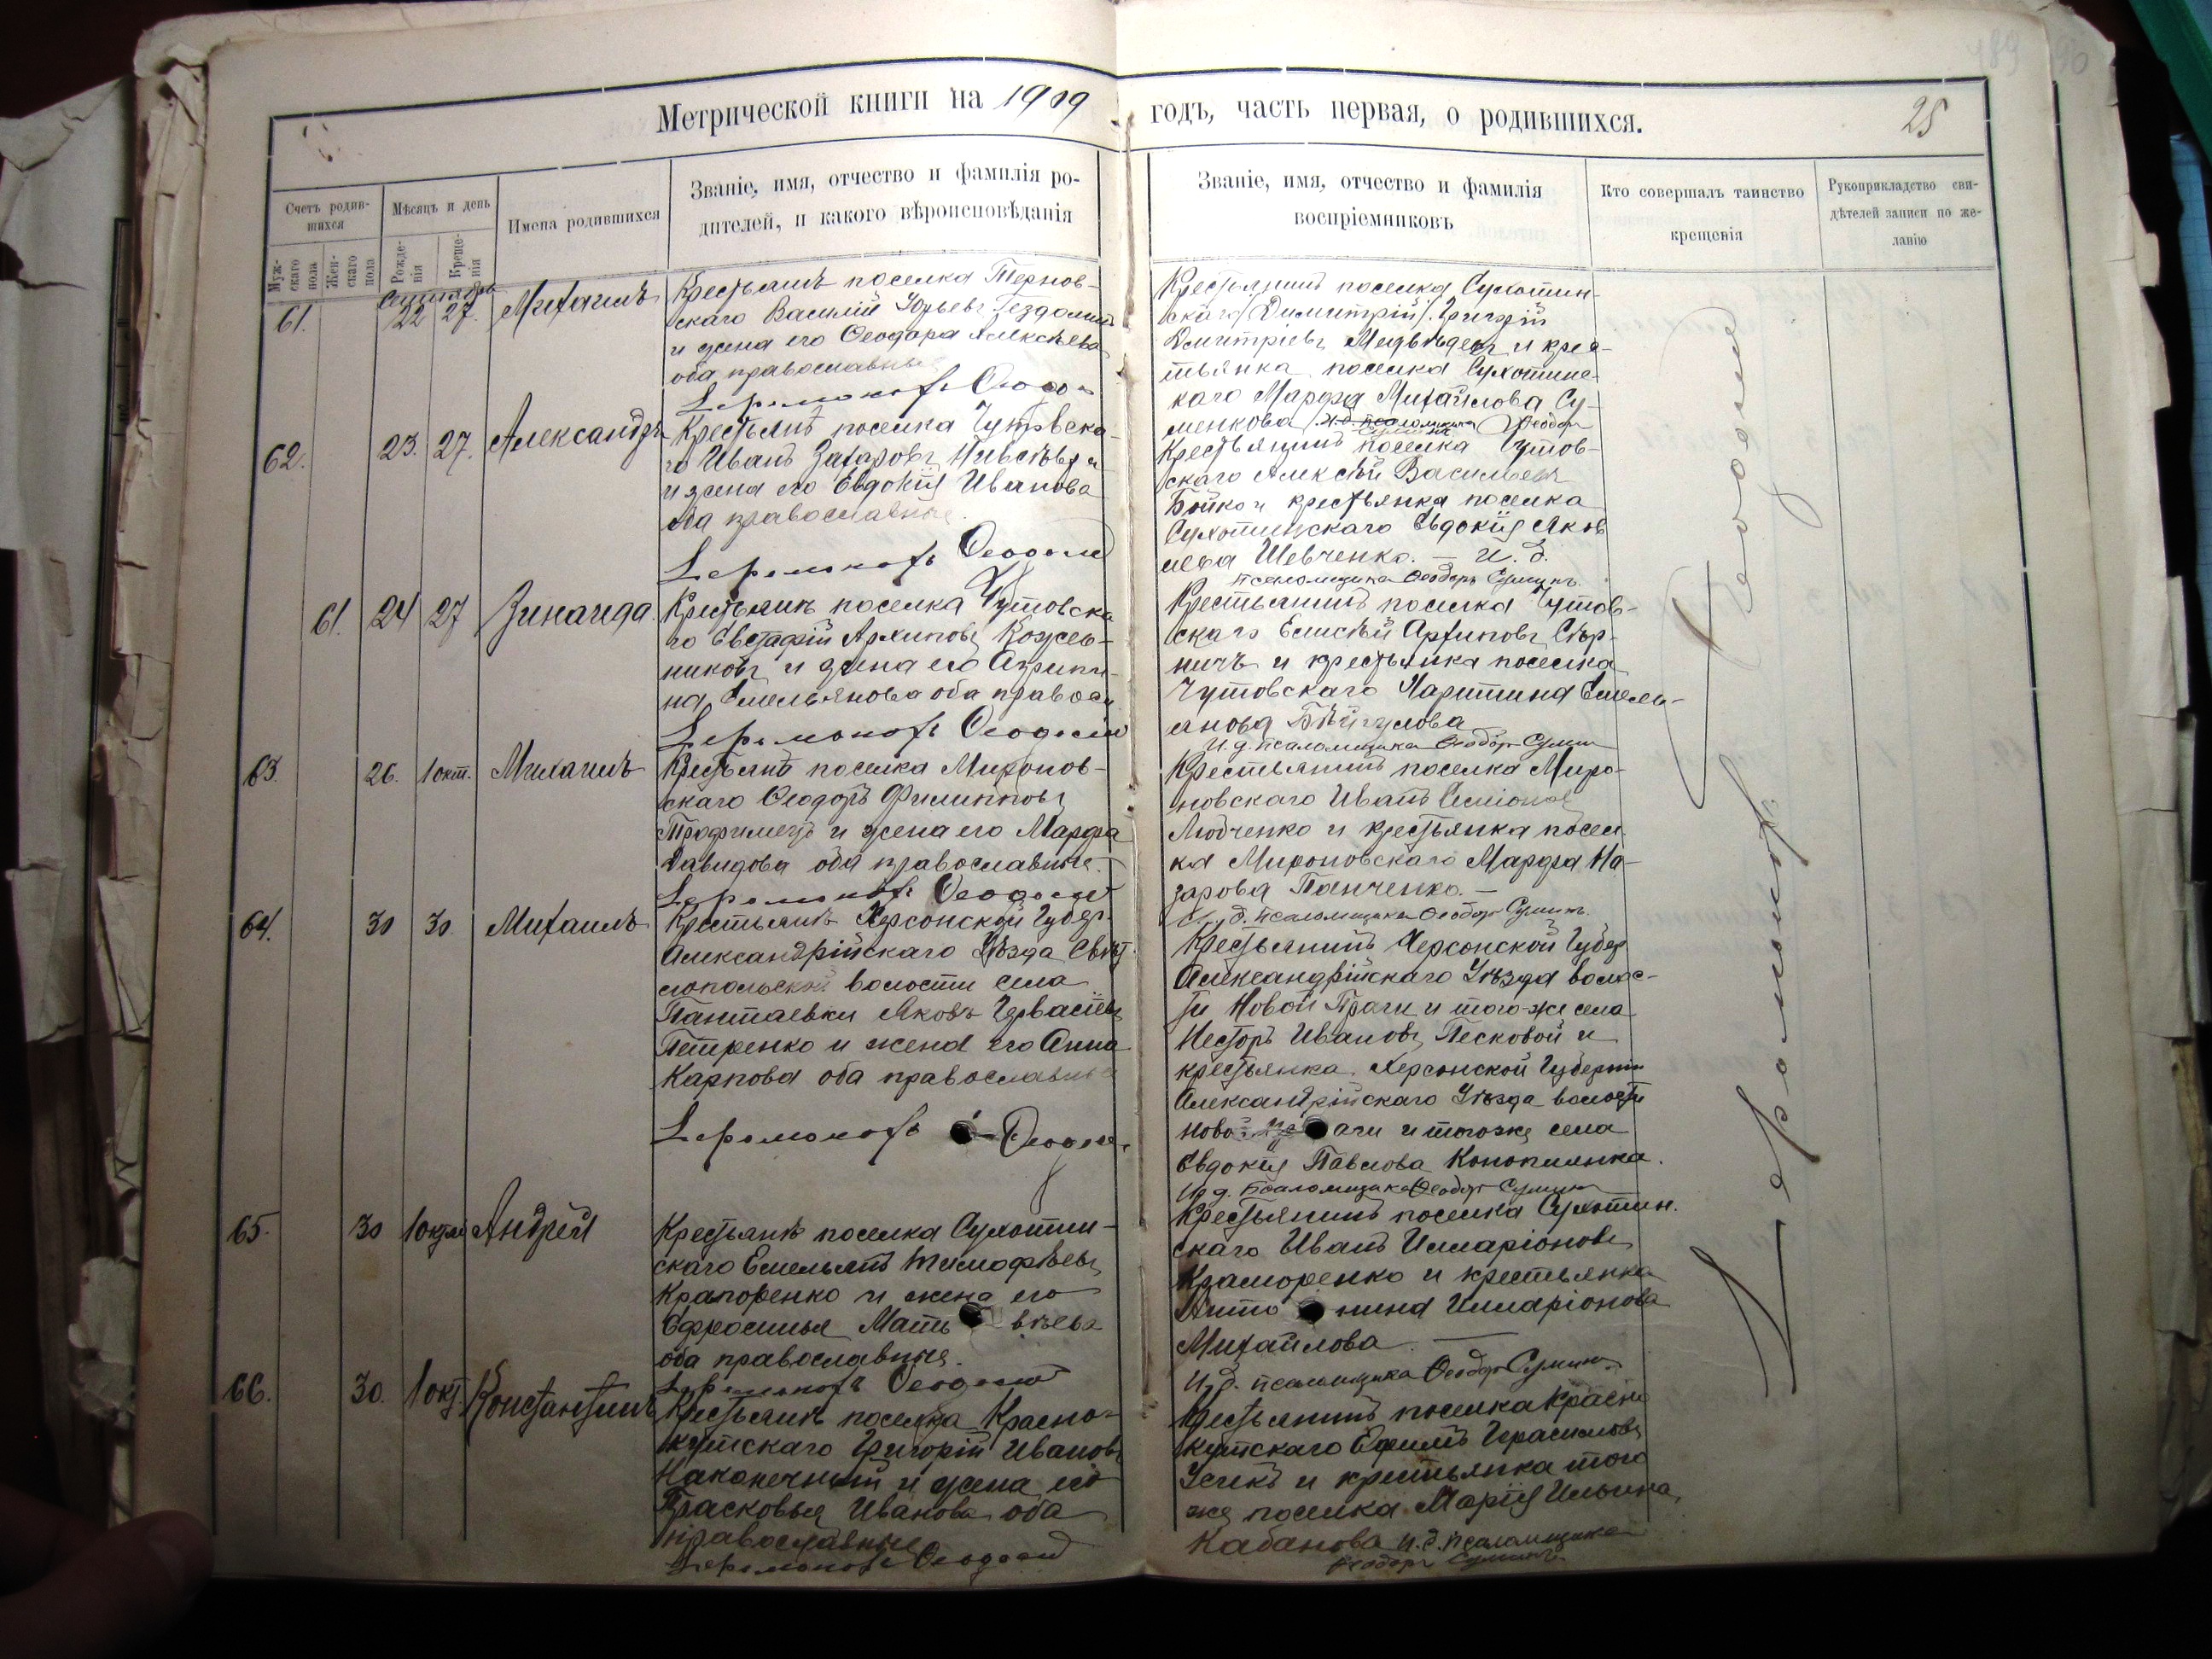 Метрической книги на 1909 годъ, часть первая, о родившихся.
25
Счетъ родив-
шихся
Мѣсяцъ и день
Имена родившихся
Званіе, имя, отчество и фамилія ро-
дителей, и какого вѣроисповѣданія
Званіе, имя, отчество и фамилія
воспріемниковъ
Кто совершалъ таинство
крещенія
Рукоприкладство сви-
дѣтелей записи по же-
ланію
Муж-
скаго
пола
Жен-
скаго
пола
Рожде-
нія
Креще-
нія
Сентябрь
61. 22 27. Михаилъ
Крестьянъ поселка Тернов-
скаго Василій Юрьевъ
и жена его Ѳеодора Алексѣева
оба православные
Іеромонахъ Ѳеодосій
Крестьянинъ поселка Сухотин-
скаго (Димитрій) Григорій
Дмитріевъ Медвѣдевъ и крес-
тьянка поселка Сухотинс-
каго Марфа Михайлова Су-
менкова Ѳеодоръ
62. 23. 27. Александръ
Крестьянъ поселка Чутовска-
го Иванъ Захаровъ
и жена его Евдокія Иванова
оба православные.
Іеромонахъ Ѳеодосій
Крестьянинъ поселка Чутов-
скаго Алексѣй Васильевъ
Бойко и крестьянка поселка
Сухотинскаго Евдокія Яков
лева Шевченко. — И. д.
псаломщика Ѳеодоръ Сумин.
61. 24 27 Зинаида.
Крестьянъ поселка Чутовска
го Евстафій Архиповъ Кожев-
никовъ и жена его Агрипи-
на Емельянова оба правосл
Іеромонахъ Ѳеодосій
Крестьянинъ поселка Чутов-
скаго Елисѣй Архиповъ
ничъ и крестьянка поселка
Чутовскаго Харитина Емель-
янова
И. д. псаломщика Ѳеодоръ Сумин
63. 26. 1 окт. Михаилъ
Крестьянъ поселка Миронов-
скаго Ѳеодоръ Филипповъ
Трофимецъ и жена его Марфа
Давидова оба православные.
Іеромонахъ Ѳеодосій
Крестьянинъ поселка Миро-
новскаго Иванъ Семіоновъ
Любченко и крестьянка посел
ка Мироновскаго Марфа На-
зарова Панченко. —
И. д. псаломщика Ѳеодоръ Сумин.
64. 30 30. Михаилъ
Крестьянъ Херсонской Губер.
Александрійскаго Уѣзда Свѣт
лопольской волости села
Пантаевки Яковъ Гервасіевъ
Петренко и жена его Анна
Карпова оба православные
Іеромонахъ Ѳеодосій
Крестьянинъ Херсонской Губер
Александрійскаго Уѣзда волос-
ти Новой Праги и того-же села
Несторъ Ивановъ Песковой и
крестьянка Херсонской Губерніи
Александрійскаго Уѣзда волости
Ново аги и тогоже села
Евдокія Павлова Коноплянка.
И. д. псаломщика Ѳеодоръ Сумин
65. 30 1 октяб Андрей
Крестьянъ поселка Сухотин-
скаго Емельянъ Тимофѣевъ
Крапоренко и жена его
Ефросинья Мать вѣева
оба православные.
Іеромонахъ Ѳеодосій
Крестьянинъ поселка Сухотин.
скаго Иванъ Илларіоновъ
Краморенко и крестьянка
Анто нина Илларіонова
Михайлова. —
И. д. псаломщика Ѳеодоръ Сумин.
66. 30. 1 окт. Константинъ
Крестьянъ поселка Красно-
кутскаго Григорій Ивановъ
Наконечный и жена его
Прасковья Иванова оба
православные
Іеромонахъ Ѳеодосій
Крестьянинъ поселка Красно
кутскаго Ефимъ Герасимовъ
Усикъ и крестьянка того
же поселка Марія Ильина
Кабанова И. д. псаломщика
Ѳеодоръ Сумин.
Іеромонахъ Ѳеодосій